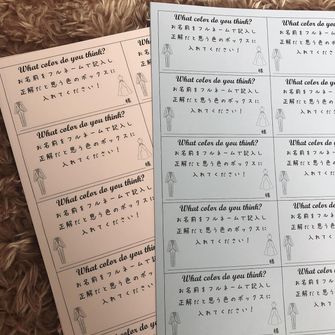 What color do you think?
お名前をフルネームで記入し
正解だと思う色のボックスに
入れてください！
様
What color do you think?
お名前をフルネームで記入し
正解だと思う色のボックスに
入れてください！
様
What color do you think?
お名前をフルネームで記入し
正解だと思う色のボックスに
入れてください！
What color do you think?
お名前をフルネームで記入し
正解だと思う色のボックスに
入れてください！
What color do you think?
お名前をフルネームで記入し
正解だと思う色のボックスに
入れてください！
What color do you think?
お名前をフルネームで記入し
正解だと思う色のボックスに
入れてください！
様
What color do you think?
お名前をフルネームで記入し
正解だと思う色のボックスに
入れてください！
様
What color do you think?
お名前をフルネームで記入し
正解だと思う色のボックスに
入れてください！
様
What color do you think?
お名前をフルネームで記入し
正解だと思う色のボックスに
入れてください！
様